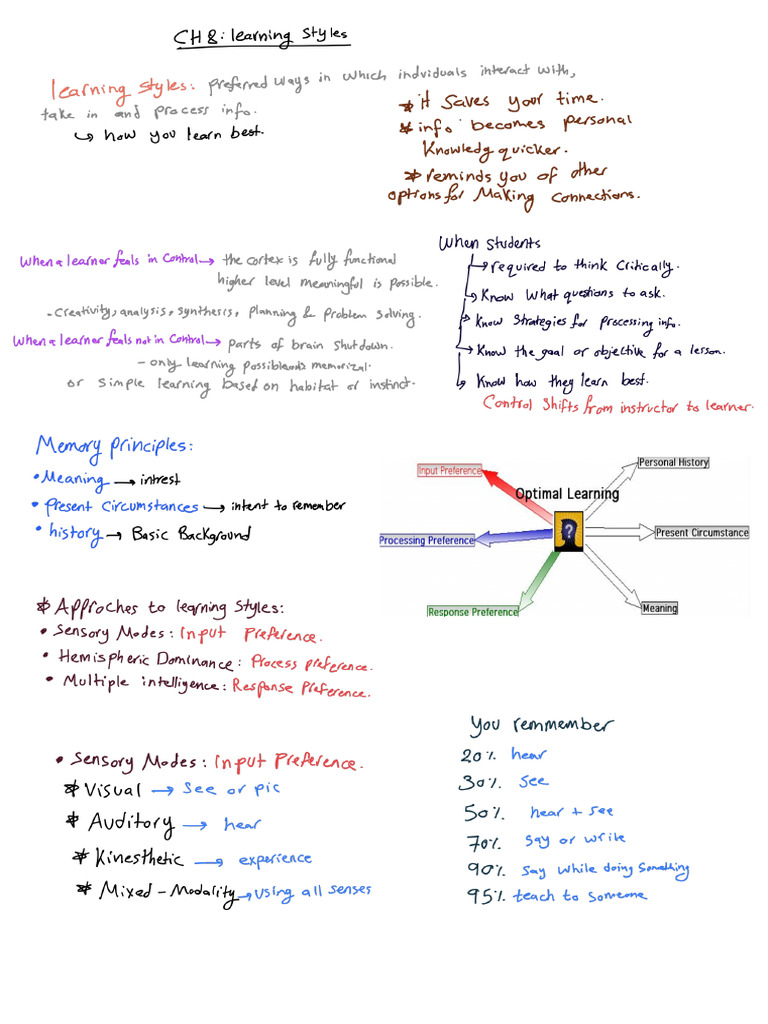 CH 8: learning Styles
learning Styles: preferred ways in which indviduals interact with,
take in and process info.
↳ how you learn best.
* it saves your time.
* info becomes personal
Knowledg quicker.
* reminds you of other
options for Making connections.
When a learner feals in Control → the cortex is fully functional
higher level meaningful is possible.
- Creativity, analysis, synthesis, planning & problem solving.
When a learner feals not in Control → parts of brain shutdown.
- only learning possible memorizal.
or simple learning based on habitat or instinct.
When students
→ required to think Critically.
→ Know What questions to ask.
→ Know Strategies for processing info.
→ Know the goal or objective for a lesson.
→ Know how they learn best.
Control Shifts from instructor to learner.
Memory principles:
• Meaning → intrest
• Present Circumstances → intent to remember
• history → Basic Background
Input Preference
Personal History
Optimal Learning
Processing Preference
Present Circumstance
Response Preference
Meaning
* Approches to learning styles:
• Sensory Modes: Input Preference.
• Hemispheric Dominance: Process preference.
• Multiple intelligence: Response Preference.
• Sensory Modes: Input Preference.
* Visual → See or pic
* Auditory → hear
* Kinesthetic → experience
* Mixed-Modality → using all senses
You remmember
20% hear
30% See
50% hear + see
70% say or write
90% say while doing something
95% teach to someone